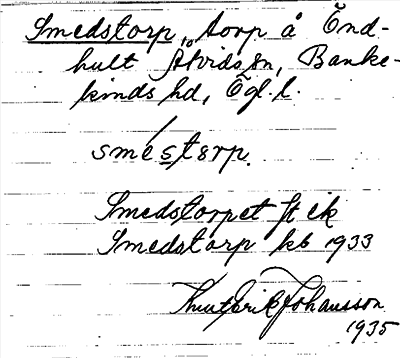 Smedstorp, torp å Önd-
hult Åtvids sn, Banke-
kinds hd, Ögl. l.
smestərp.
Smedstorpet
Smedstorp kb 1933
Knut Erik Johansson
1935